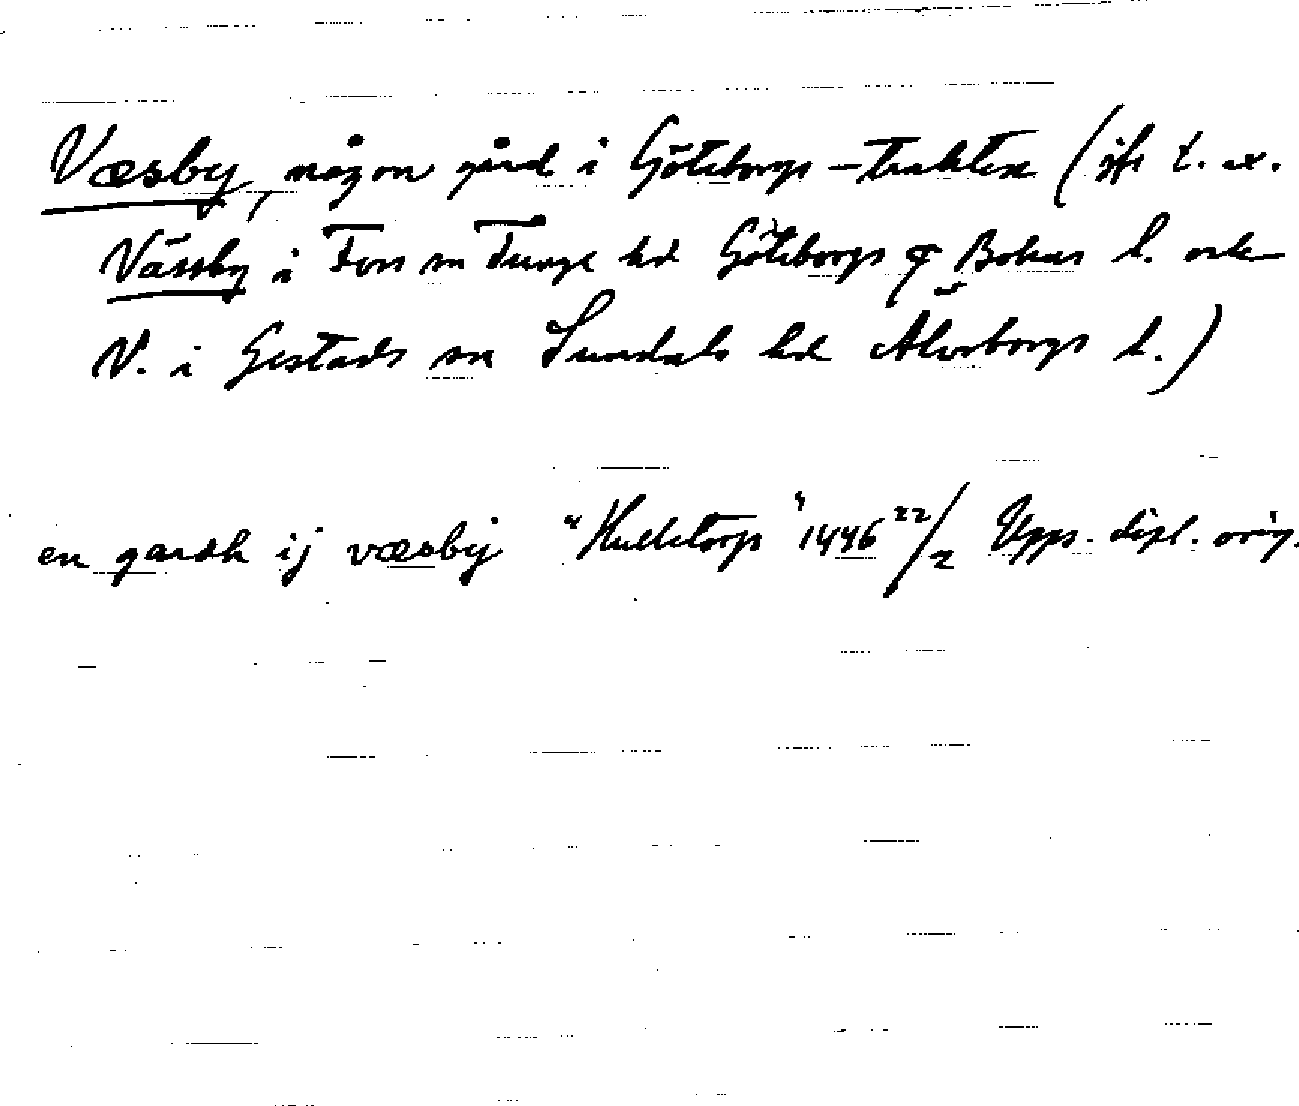 Væsby, någon gård i Göteborgs-trakten (jfr t. ex.
Vässby i Fors sn Tunge hd Göteborgs o Bohus l. och
V. i Gestads sn Sundals hd Älvsborgs l.)
en gardh ij væsby "Hulletorp" 1446 22/2 Upps. dipl. orig.